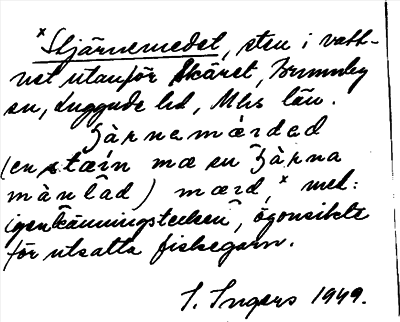 ×Stjärnemedet, sten i vatt-
net utanför Skäret, Brunnby
sn, Luggude hd, Mlhs län.
Järnamærded
(en stæin mæ en Järna
målad) mærd, × med:
igenkänningstecken, ögonsikte
för utsatta fiskegarn.
I. Ingers 1949.